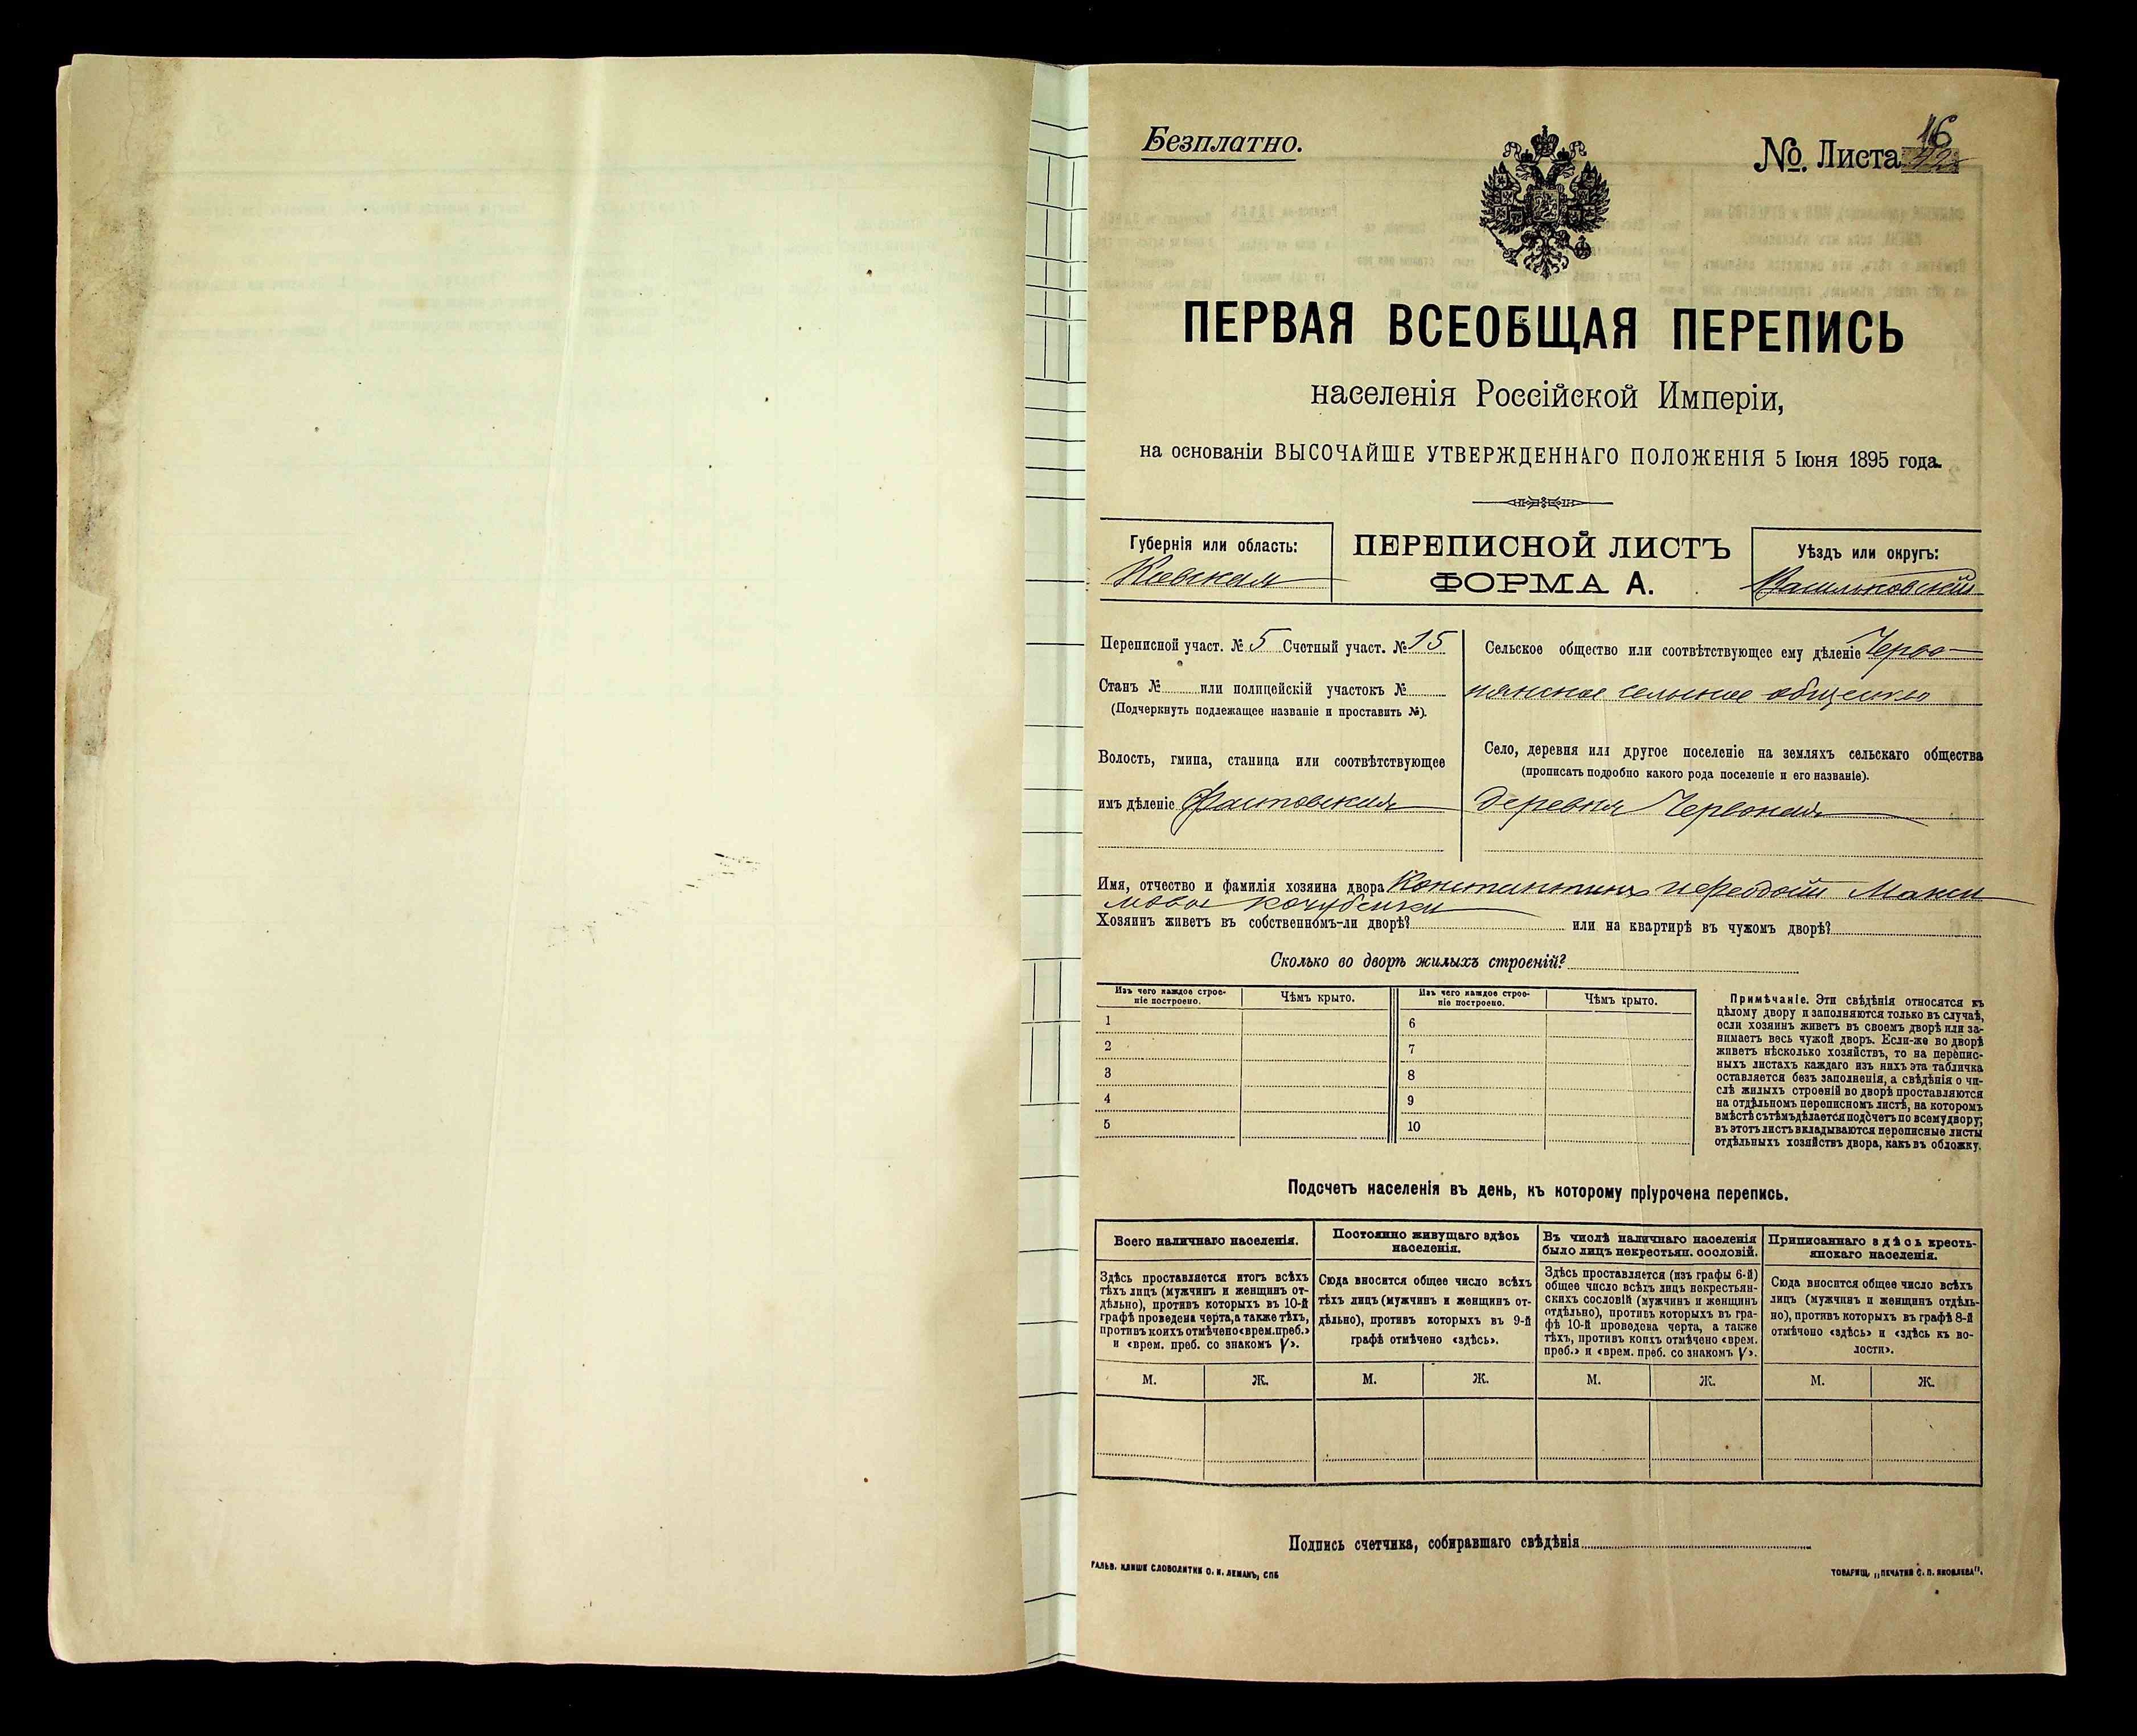 Безплатно.
№ Листа 16
ПЕРВАЯ ВСЕОБЩАЯ ПЕРЕПИСЬ
населенія Россійской Имперіи,
на основаніи ВЫСОЧАЙШЕ УТВЕРЖДЕННАГО ПОЛОЖЕНІЯ 5 Іюня 1895 года.
Губернія или область:
Кіевская
ПЕРЕПИСНОЙ ЛИСТЪ
ФОРМА А.
Уѣздъ или округъ:
Васильковскій
Переписной участ. № 5 Счетный участ. № 15
Станъ № или полицейскій участокъ №
(Подчеркнуть подлежащее названіе и проставить №).
Волость, гмина, станица или соотвѣтствующее
имъ дѣленіе Фастовская
Сельское общество или соотвѣтствующее ему дѣленіе Черво-
нянское сельское общество
Село, деревня или другое поселеніе на земляхъ сельскаго общества
(прописать подробно какого рода поселеніе и его названіе).
деревня Червоная
Имя, отчество и фамилія хозяина двора Константинъ Макси
мовъ
Хозяинъ живетъ въ собственномъ-ли дворѣ? или на квартирѣ въ чужомъ дворѣ?
Сколько во дворѣ жилыхъ строеній?
Изъ чего каждое строе-
ніе построено.
Чѣмъ крыто.
Изъ чего каждое строе-
ніе построено.
Чѣмъ крыто.
1
2
3
4
5
6
7
8
9
10
Примѣчаніе. Эти свѣдѣнія относятся къ
цѣлому двору и заполняются только въ случаѣ,
если хозяинъ живетъ въ своемъ дворѣ или за-
нимаетъ весь чужой дворъ. Если-же во дворѣ
живетъ нѣсколько хозяйствъ, то на перепис-
ныхъ листахъ каждаго изъ нихъ эта табличка
оставляется безъ заполненія, а свѣдѣнія о чи-
слѣ жилыхъ строеній во дворѣ проставляются
на отдѣльномъ переписномъ листѣ, на которомъ
вмѣстѣ съ тѣмъ дѣлается подсчетъ по всему двору;
въ этотъ листъ вкладываются переписные листы
отдѣльныхъ хозяйствъ двора, какъ въ обложку.
Подсчетъ населенія въ день, къ которому пріурочена перепись.
Всего наличнаго населенія.
Постоянно живущаго здѣсь
населенія.
Въ числѣ наличнаго населенія
было лицъ некрестьян. сословій.
Приписаннаго здѣсь кресть-
янскаго населенія.
Здѣсь проставляется итогъ всѣхъ
тѣхъ лицъ (мужчинъ и женщинъ от-
дѣльно), противъ которыхъ въ 10-й
графѣ проведена черта, а также тѣхъ,
противъ коихъ отмѣчено «врем. преб.»
и «врем. преб. со знакомъ V».
Сюда вносится общее число всѣхъ
тѣхъ лицъ (мужчинъ и женщинъ от-
дѣльно), противъ которыхъ въ 9-й
графѣ отмѣчено «здѣсь».
Здѣсь проставляется (изъ графы 6-й)
общее число всѣхъ лицъ некрестьян-
скихъ сословій (мужчинъ и женщинъ
отдѣльно), противъ которыхъ въ гра-
фѣ 10-й проведена черта, а также
тѣхъ, противъ коихъ отмѣчено «врем.
преб.» и «врем. преб. со знакомъ V».
Сюда вносится общее число всѣхъ
лицъ (мужчинъ и женщинъ отдѣль-
но), противъ которыхъ въ графѣ 8-й
отмѣчено «здѣсь» и «здѣсь къ во-
лости».
М. Ж. М. Ж. М. Ж. М. Ж.
Подпись счетчика, собиравшаго свѣдѣнія
ГАЛЬВ. КЛИШЕ СЛОВОЛИТНИ О. И. ЛЕМАНЪ, СПБ
ТОВАРИЩ. „ПЕЧАТНЯ С. П. ЯКОВЛЕВА“.